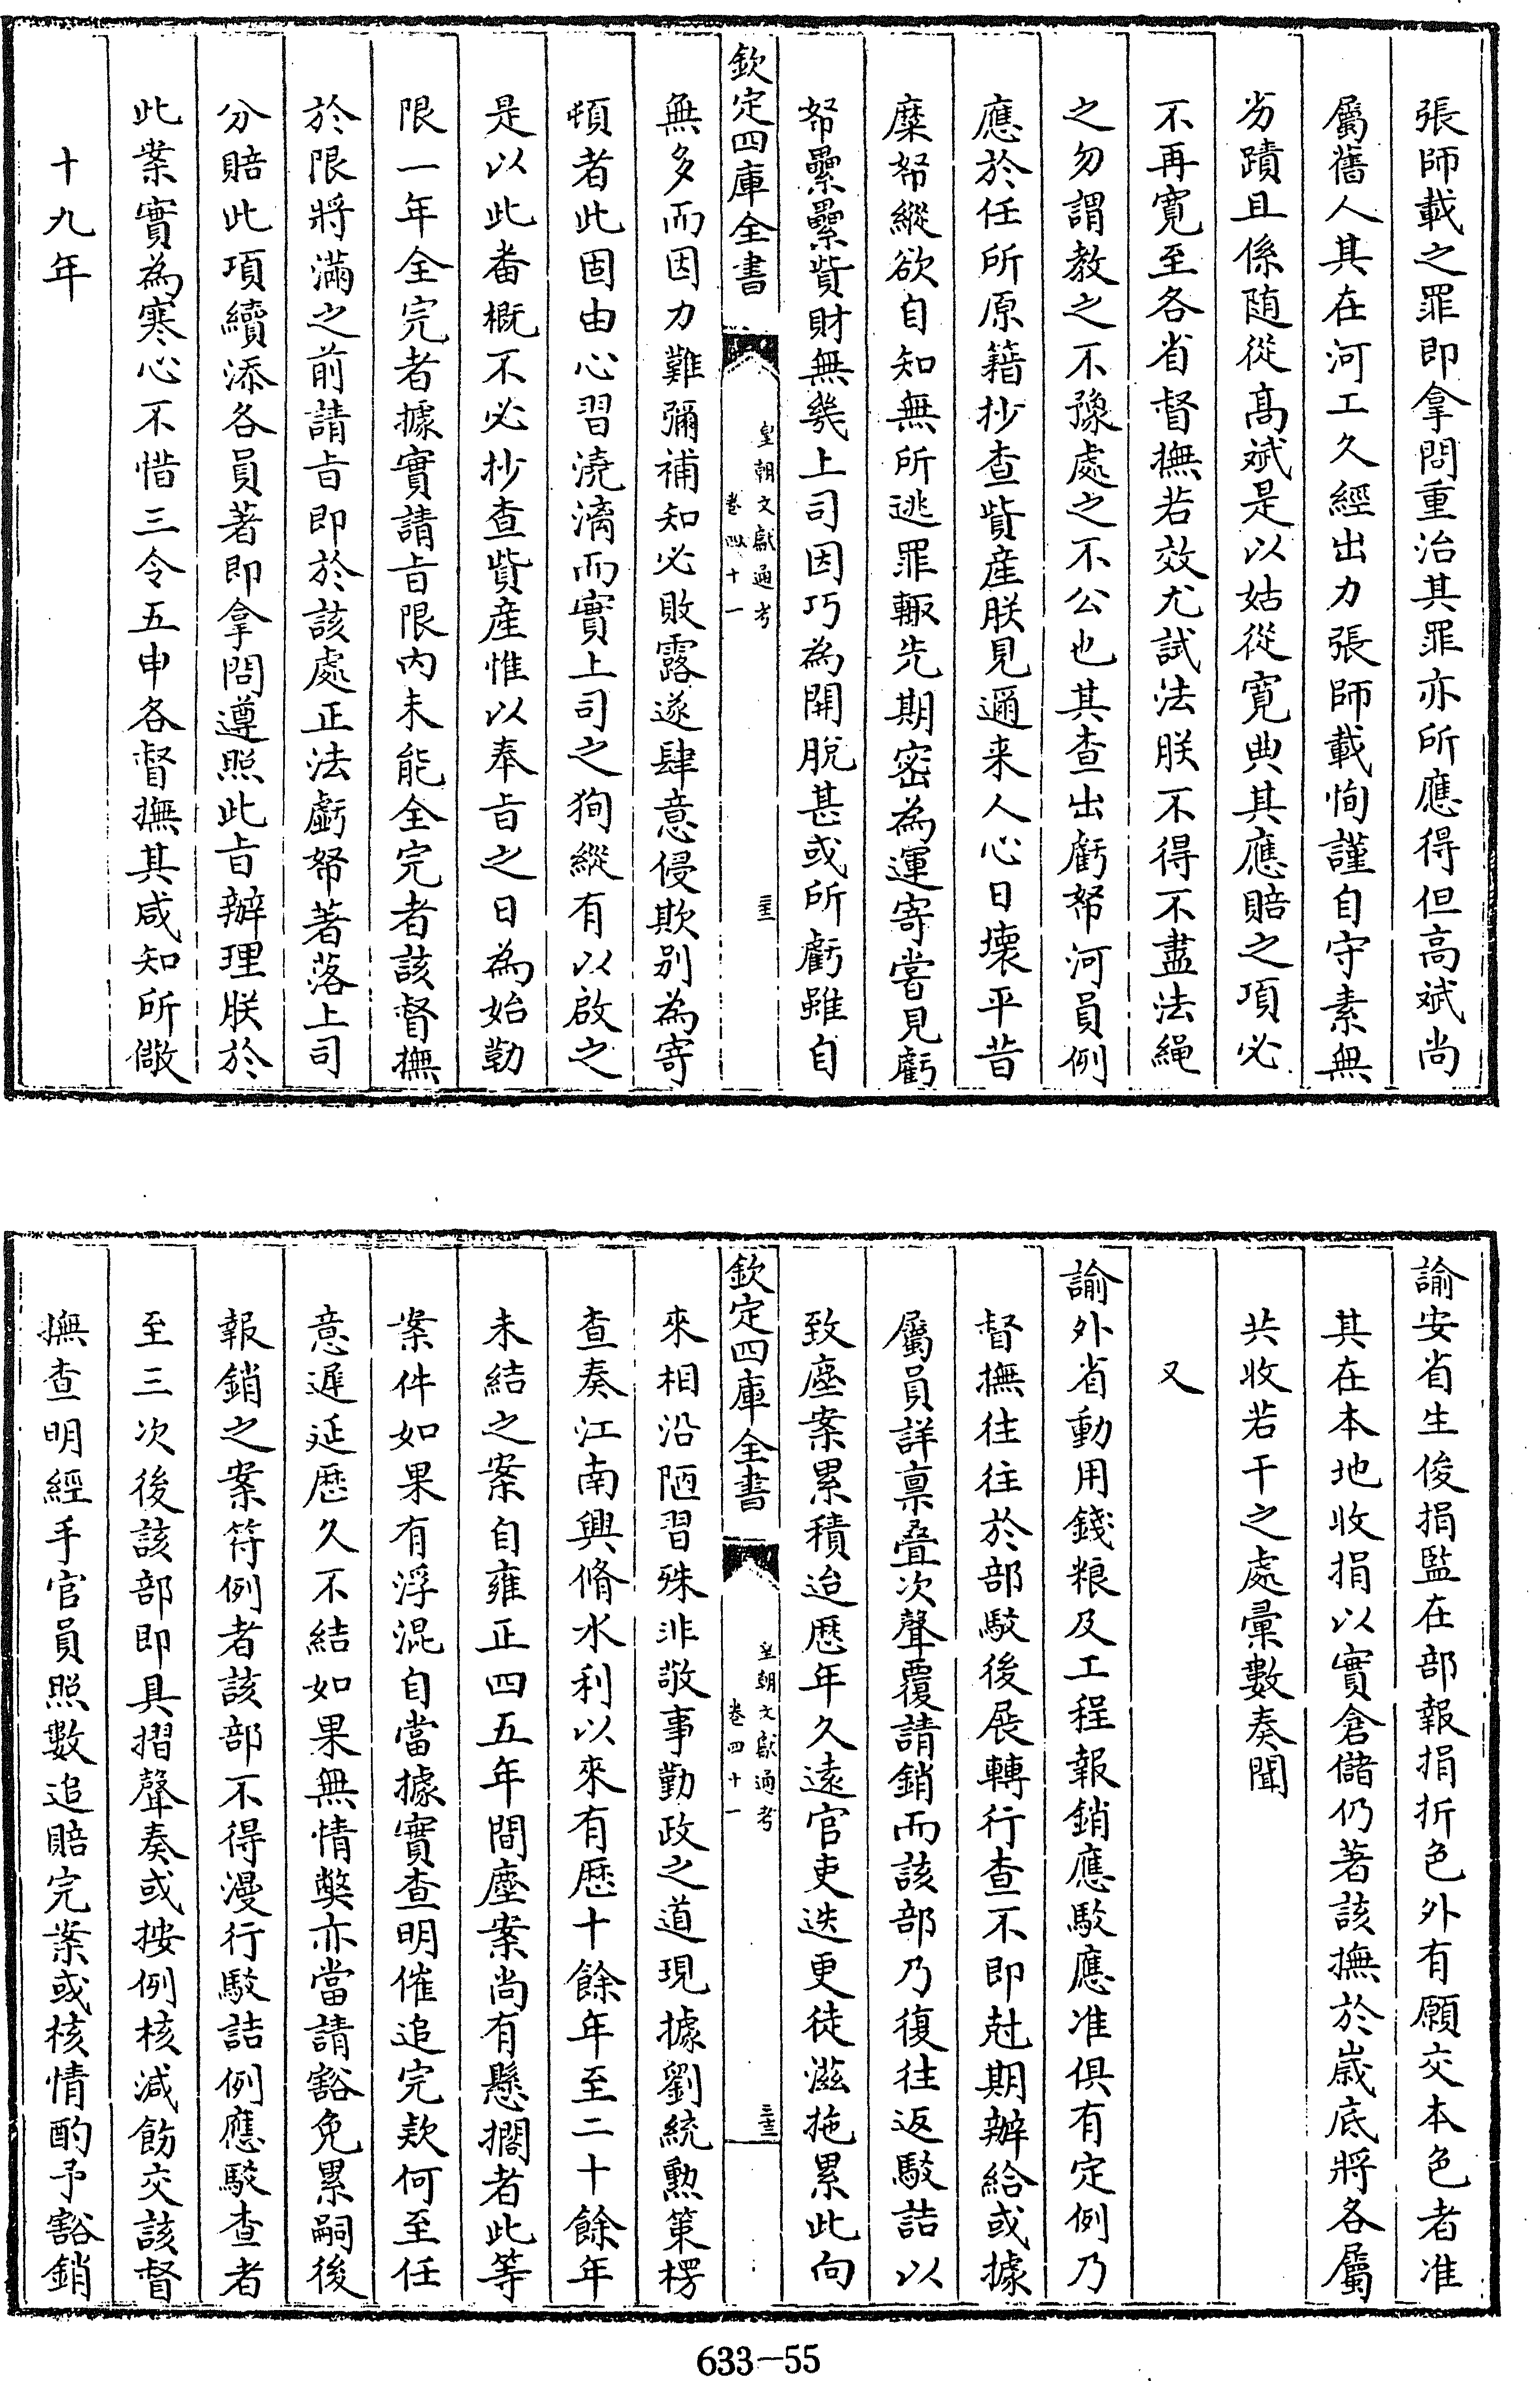 張師載之罪即拿問重治其罪亦所應得但高斌尚
屬舊人其在河工久經出力張師載恂謹自守素無
劣蹟且係随從高斌是以姑從寛典其應賠之項必
不再寛至各省督撫若效尤試法朕不得不盡法繩
之勿謂教之不豫處之不公也其查出虧帑河員例
應於任所原籍抄查貲産朕見邇来人心日壊平昔
糜帑縱欲自知無所逃罪輙先期密為運寄嘗見虧
帑纍纍貲財無幾上司因巧為開脫甚或所虧雖自
欽定四庫全書
皇朝文獻通考
卷四十一
三十三
無多而因力難彌補知必敗露遂肆意侵欺别為寄
頓者此固由心習澆漓而實上司之狥縱有以啟之
是以此番概不必抄查貲産惟以奉㫖之日為始勒
限一年全完者據實請㫖限内未能全完者該督撫
於限將滿之前請㫖即於該處正法虧帑著落上司
分賠此項續添各員著即拿問遵照此㫖辦理朕於
此案實為寒心不惜三令五申各督撫其咸知所儆
十九年
諭安省生俊捐監在部報捐折色外有願交本色者准
其在本地收捐以實倉儲仍著該撫於嵗底將各屬
共收若干之處彚數奏聞
又
諭外省動用錢粮及工程報銷應駁應准俱有定例乃
督撫往往於部駁後展轉行查不即尅期辦給或據
屬員詳禀叠次聲覆請銷而該部乃復往返駁詰以
致塵案累積迨歴年久逺官吏迭更徒滋拖累此向
欽定四庫全書
皇朝文獻通考
卷四十一
三十三
來相沿陋習殊非敬事勤政之道現據劉統勲策楞
查奏江南興脩水利以來有歴十餘年至二十餘年
未結之案自雍正四五年間塵案尚有懸擱者此等
案件如果有浮混自當據實查明催追完欵何至任
意遲延歴久不結如果無情弊亦當請豁免累嗣後
報銷之案符例者該部不得漫行駁詰例應駁查者
至三次後該部即具摺聲奏或按例核減飭交該督
撫查明經手官員照數追賠完案或核情酌予豁銷
633—55